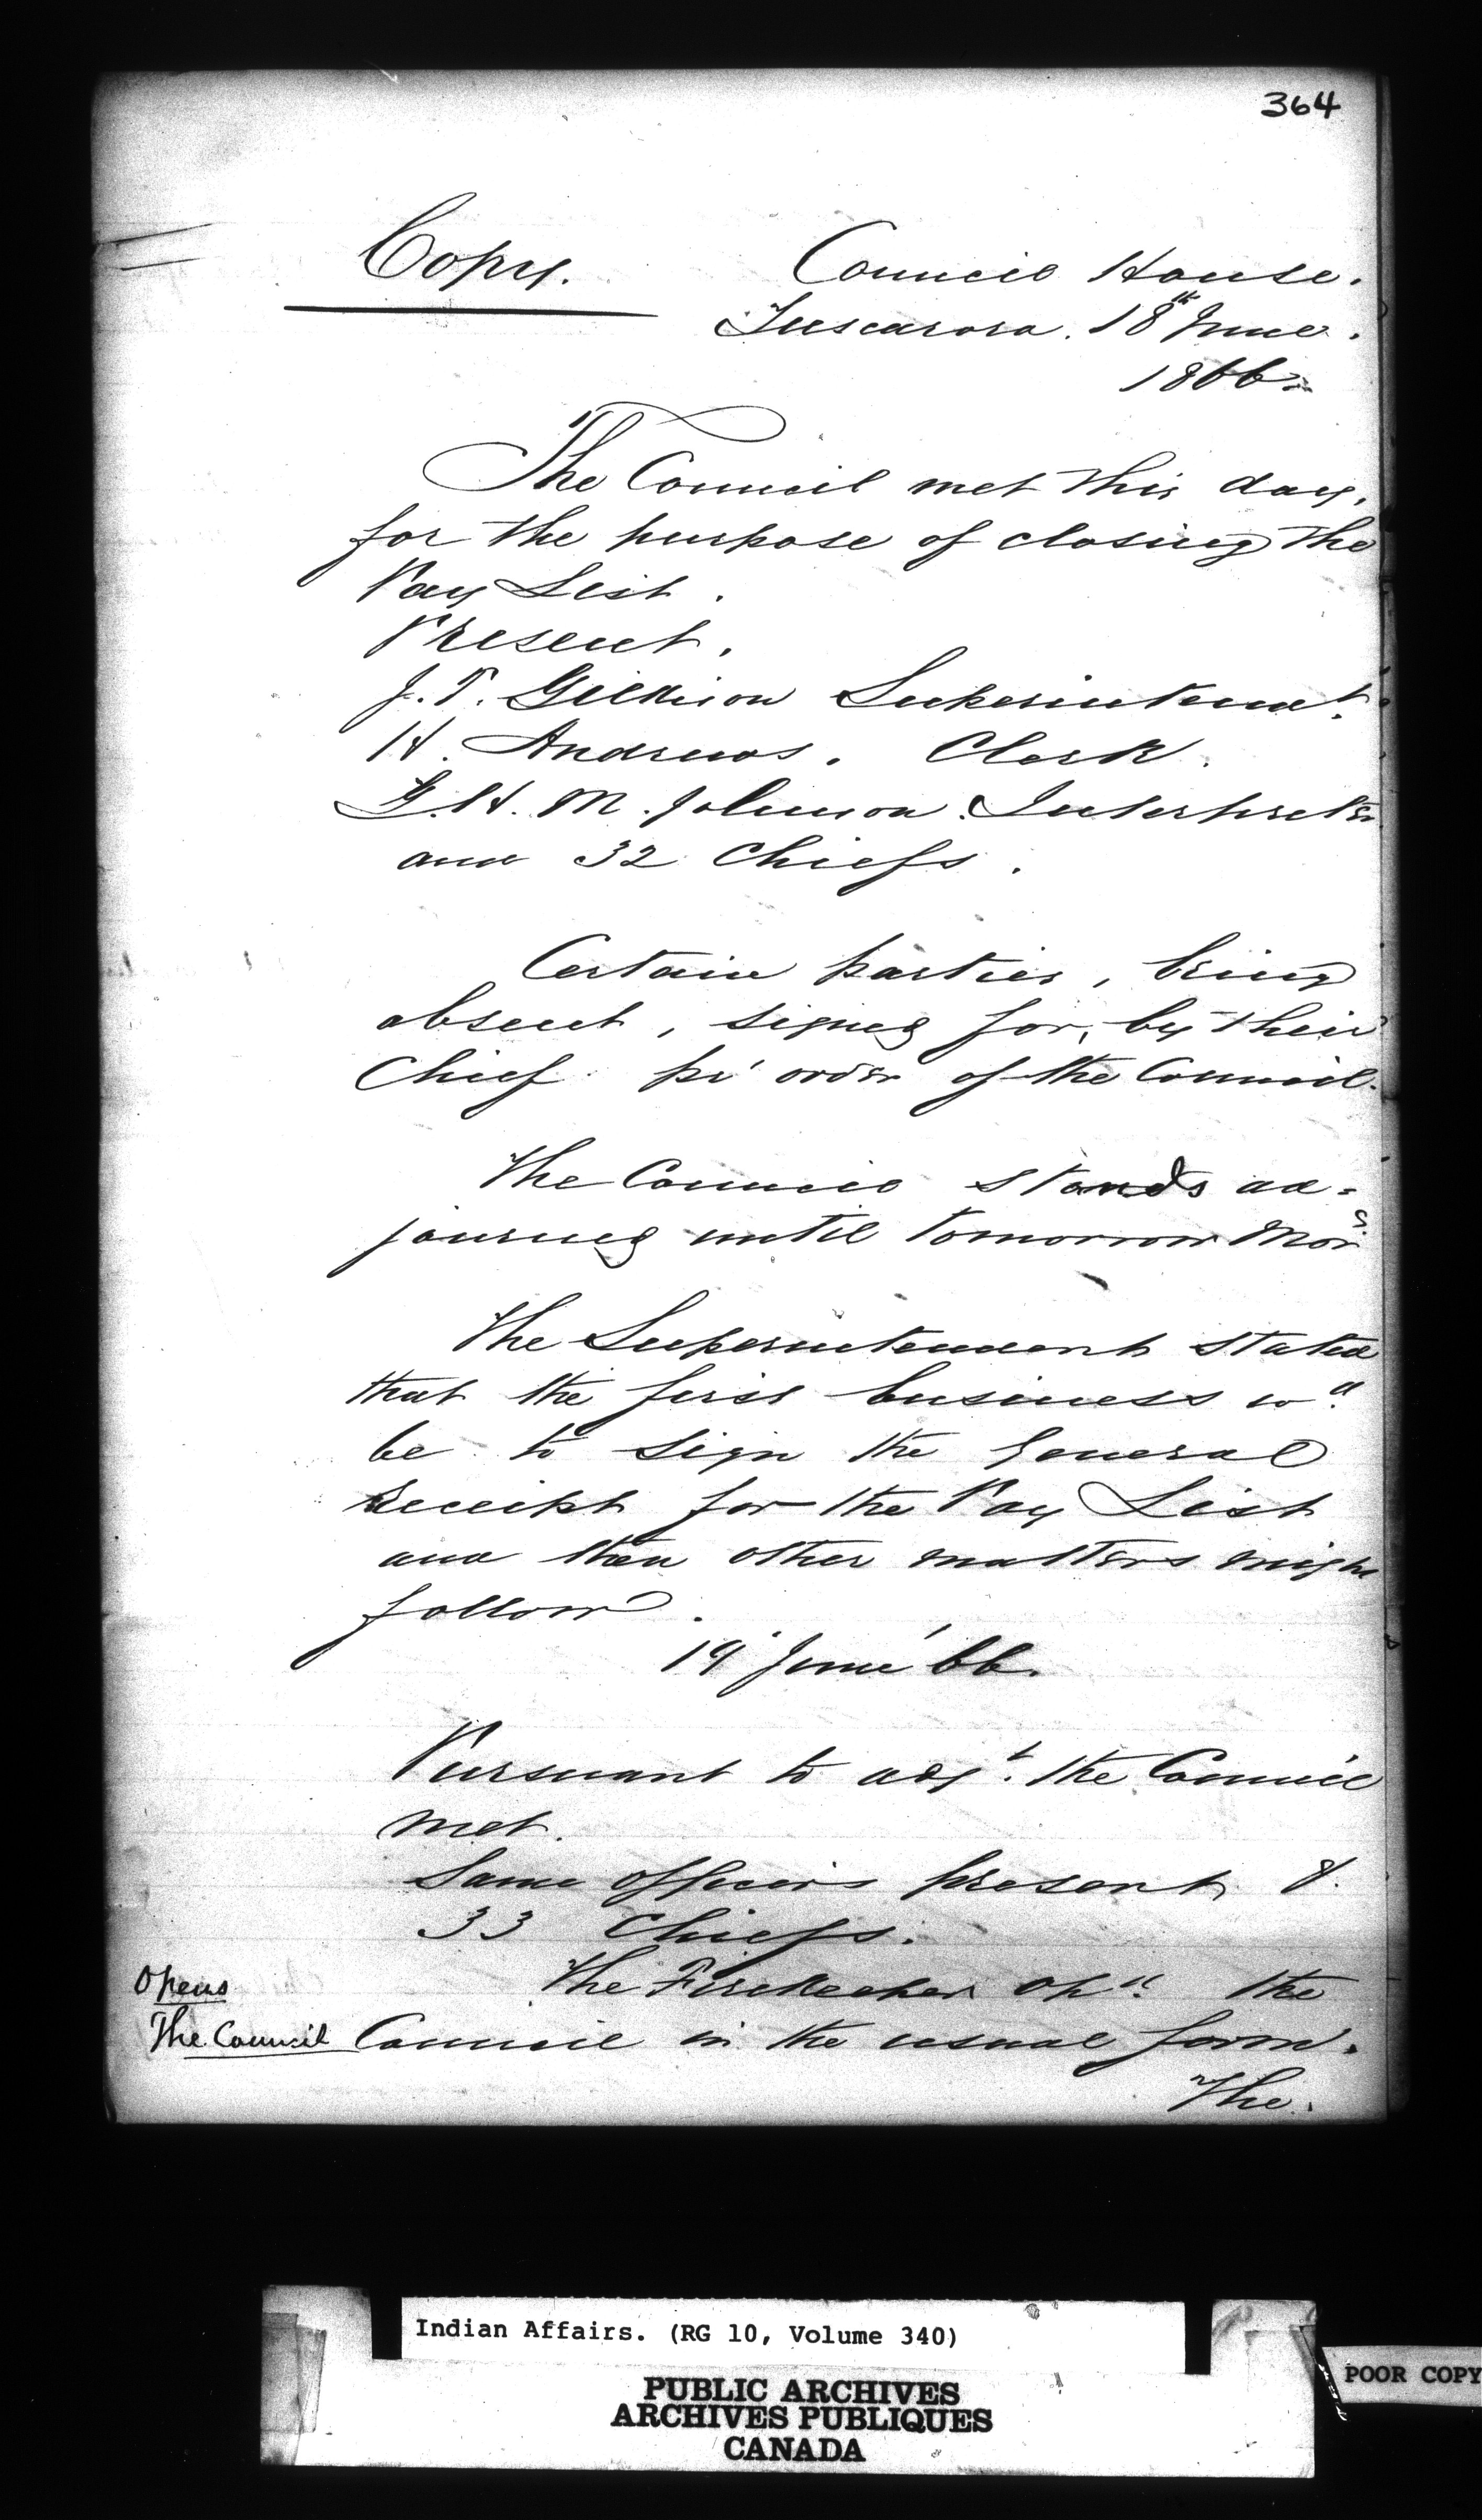 364
Copy.
Council House.
Tuscarora. 18th June.
1866.
The Council met this day,
for the purpose of closing the
Pay List.
Present.
J. T. Gilkison Superintendt.
H. Andrews. Clerk.
G. H. M. Johnson. Interpreter
and 32 Chiefs.
Certain parties, being
absent, signed for, by their
Chief pr order of the Council.
The Council stands ad=
journed until tomorrow Morg
The Superintendent stated
that the first business wd.
be to sign the General
receipt for the Pay List
and then other matters might
follow.
19 June '66.
Pursuant to adjt. the Council
met.
Same officers present &
33 Chiefs.
The Firekeeper opd. the
Opens
The Council
Council in the usual form.
The.
Indian Affairs. (RG 10, Volume 340)
PUBLIC ARCHIVES
ARCHIVES PUBLIQUES
CANADA
POOR COPY